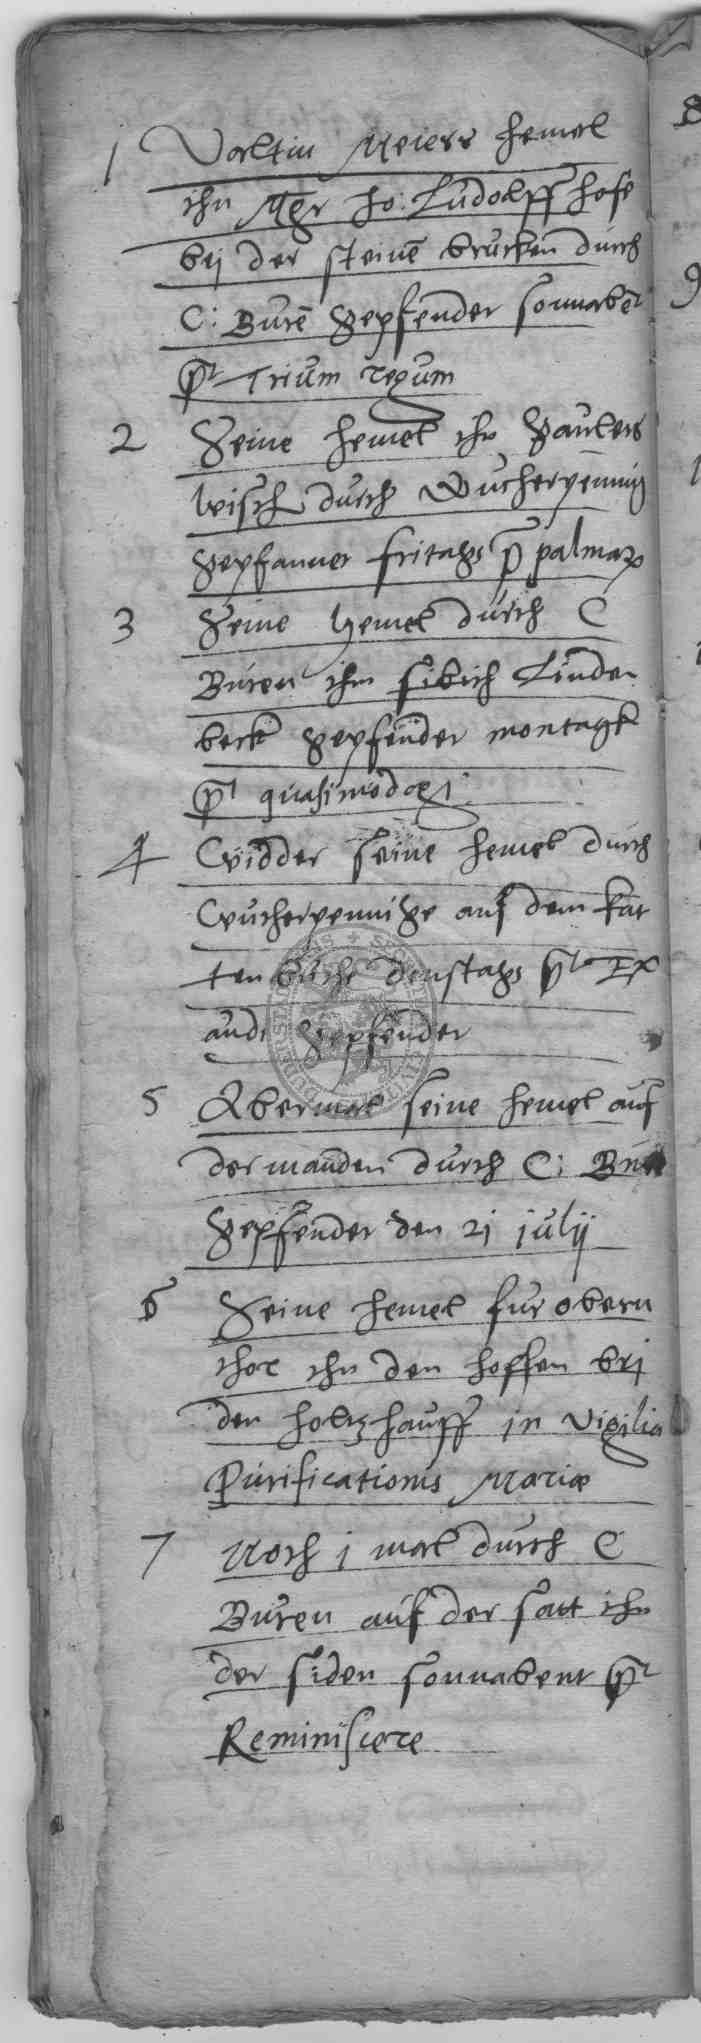 1 Valtin Meiers hemel
ihn Mgr Jo: Ludolff hofe
bej der steinē brucken durch
C: Burē gepfender sonnabēt
pt Trium regum
2 Seine hemel ihn Paulers
wisch durch Wucherpennig
gepfannet fritags p palmar
3 Seine hemel durch C
Buren ihm sibich Linden
beck gepfender montagk
pt quasimodog:
4 Widder seine hemel durch
Wucherpennige auf dem kat
tenbuche denstags pt Ex
audi gepfender
5 Abermal seine hemel auf
der manden durch C: Bure
gepfender den 21 julij
6 Seine hemel fur obern
thor ihn den hoffen bej
den holtzhauff in vigilia
Purificationis Mariæ
7 Noch j mal durch C
Buren auf der satt ihn
der siden sonnabent pt
Reminiscere